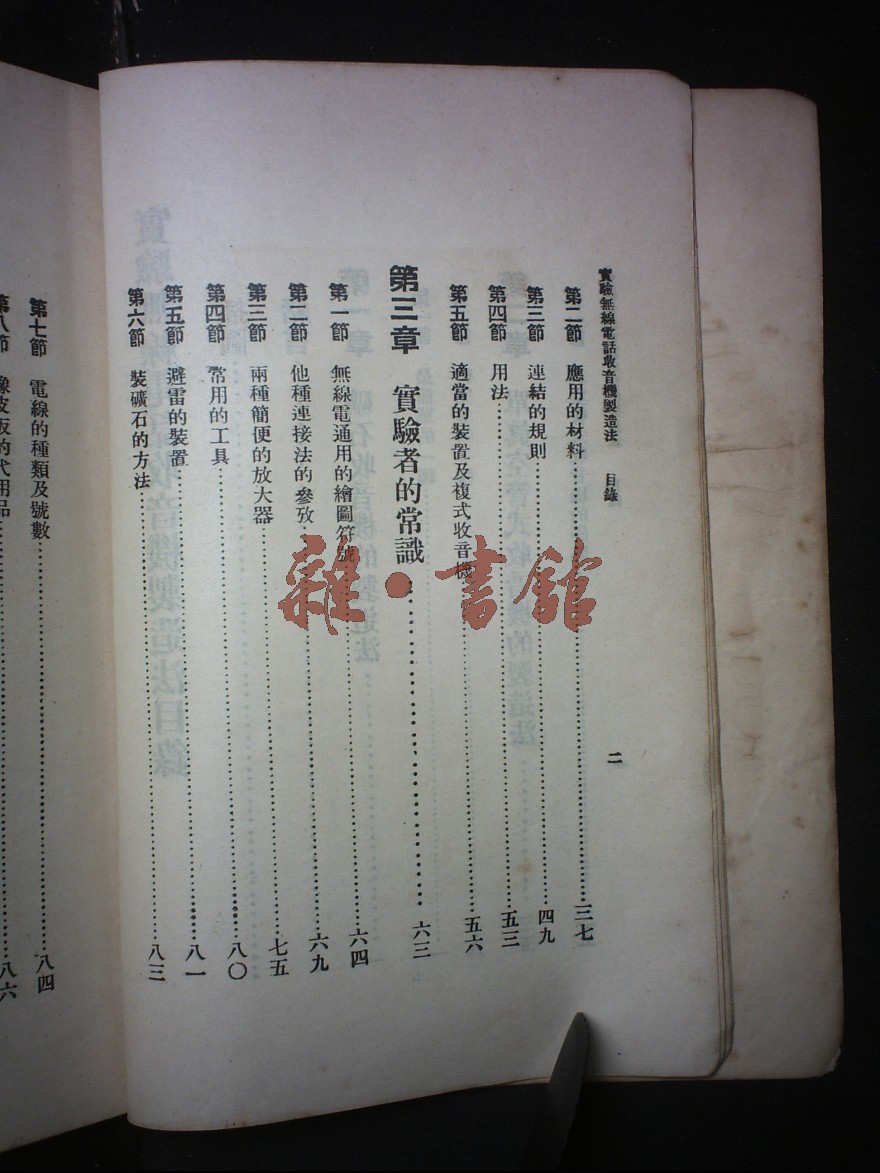 實驗無線電話收音機製造法 目錄 二
第二節 應用的材料 三七
第三節 連結的規則 四九
第四節 用法 五三
第五節 適當的裝置及複式收音機 五六
第三章 實驗者的常識 六三
第一節 無線電通用的繪圖符號 六四
第二節 他種連接法的參攷 六九
第三節 兩種簡便的放大器 七五
第四節 常用的工具 八〇
第五節 避雷的裝置 八一
第六節 裝礦石的方法 八三
第七節 電線的種類及號數 八四
第八節 橡皮版的代用品 八六
雜·書館